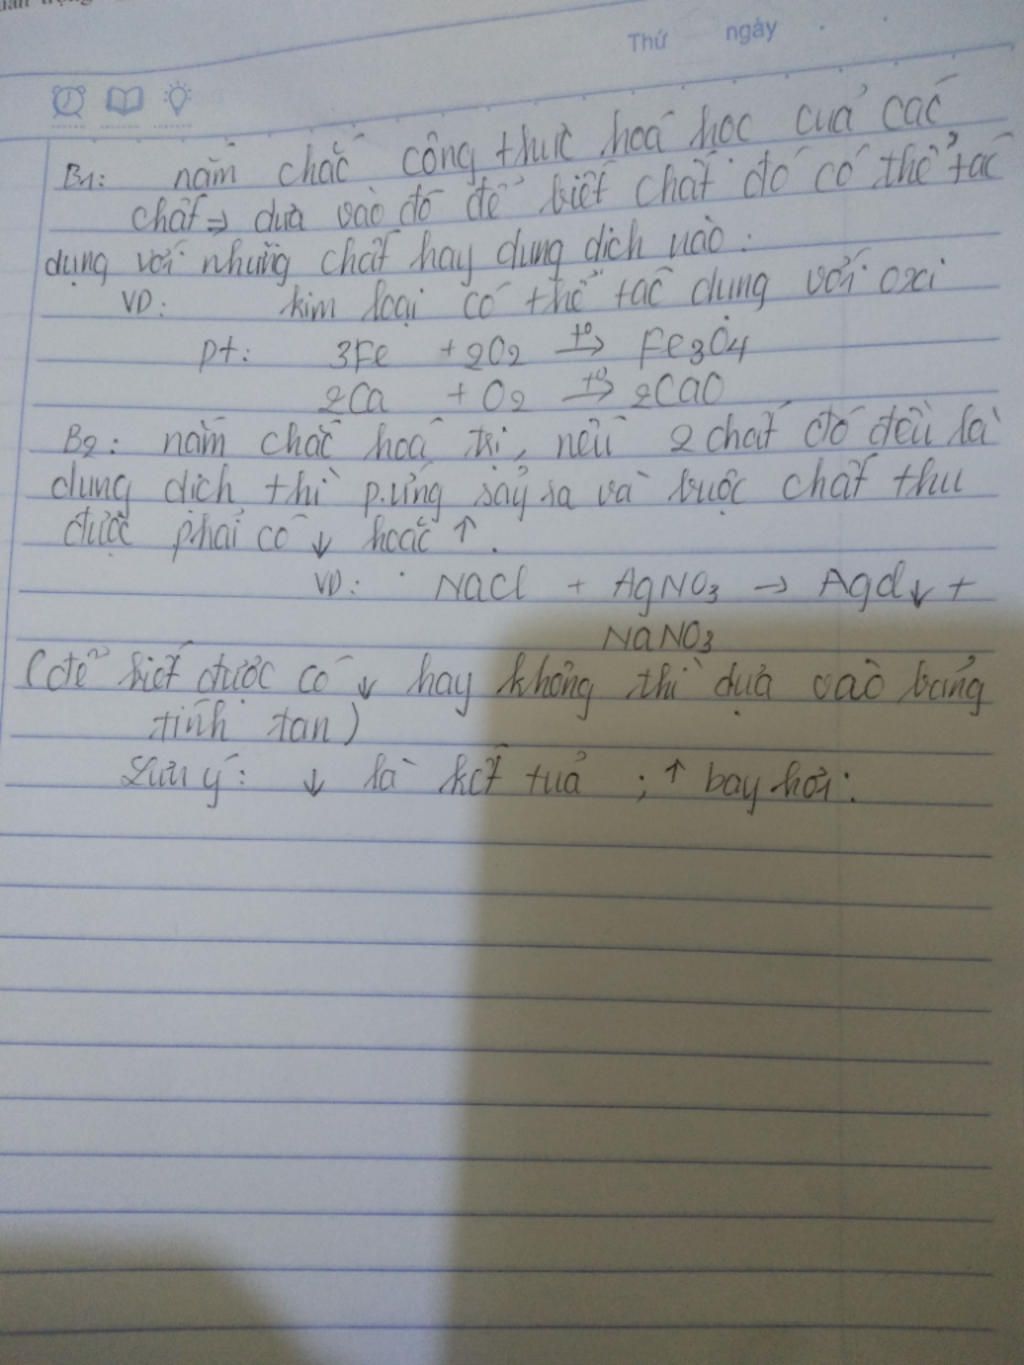 Thứ ngày
B1: nắm chắc công thức hoá học của các
chất => dựa vào đó để biết chất đó có thể tác
dụng với những chất hay dung dịch nào.
VD: kim loại có thể tác dụng với oxi
pt: 3Fe + 2O2 t°→ Fe3O4
2Ca + O2 t°→ 2CaO
B2: nắm chắc hoá trị, nếu 2 chất đó đều là
dung dịch thì p.ứng sảy sa và buộc chất thu
được phải có ↓ hoặc ↑.
VD: NaCl + AgNO3 → AgCl↓ +
NaNO3
(để biết được có ↓ hay không thì dựa vào bảng
tính tan)
Lưu ý: ↓ là kết tủa ; ↑ bay hơi.